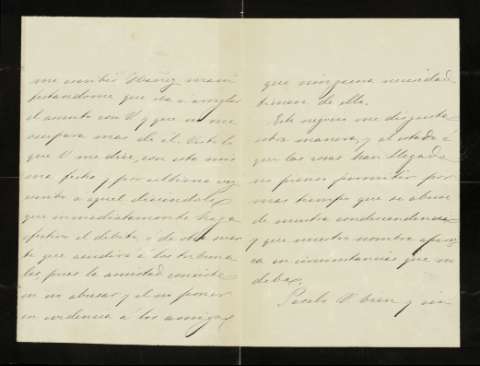 me escribió Ibáñez mani
festandome que va á arreglar
el asunto con V y que no me
ocupara mas de él. Visto lo
que V me dice, con esta mis
ma fecha y por ultima vez
escribo a aquel diciendole
que inmediatamente haga
efectivo el debito, ó de otra suer
te que acudiré á los tribuna
les pues la amistad consiste
en no abusar y el no poner
en evidencia á los amigos
que ninguna necesidad
tienen de ello.
Este negocio me disgusta
sobre manera, y el estado á
que las cosas han llegado
no pienso permitir por
mas tiempo que se abuse
de nuestra condescendencia
y que nuestro nombre aparez
ca en circunstancias que no
debe.
Páselo V bien y